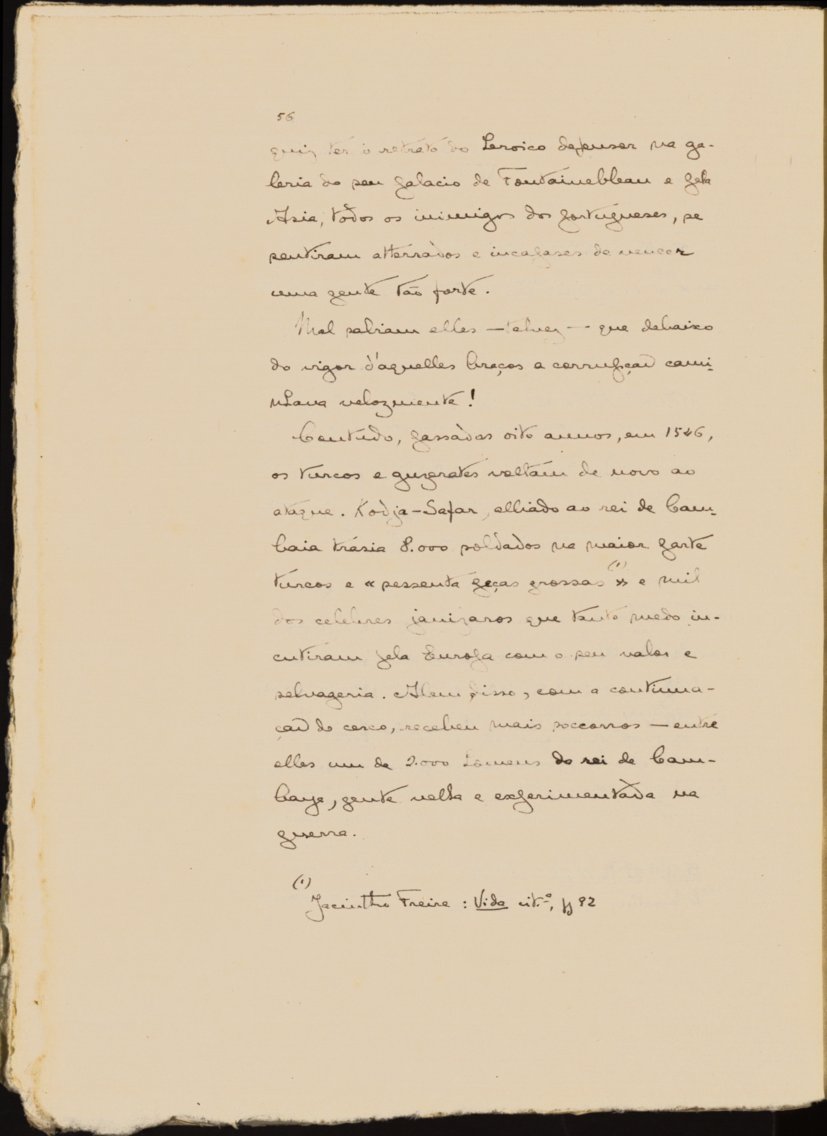 56
quiz ter o retrato do heroico defensor na ga-
leria do seu palacio de Fontainebleau e pela
Asia, todos os inimigos dos portugueses, se
sentiram atterrados e incapases de vencer
uma gente tão forte.
Mal sabiam elles — talvez — que debaixo
do vigor d'aquelles braços a corrupção cami-
nhava velozmente!
Comtudo, passados oito annos, em 1546,
os turcos e guzerates voltam de novo ao
ataque. Kodja-Safar, alliado ao rei de Cam-
baia trasia 8.000 soldados na maior parte
turcos e « sessenta peças grossas (1) » e mil
dos celebres janizaros que tanto medo in-
cutiram pela Europa com o seu valor e
selvageria. Alem disso, com a continua-
ção do cerco, recebeu mais soccorros — entre
elles um de 2.000 homens do rei de Cam-
baya, gente velha e experimentada na
guerra.
(1)
Jacintho Freire : Vida cit.º, p 92